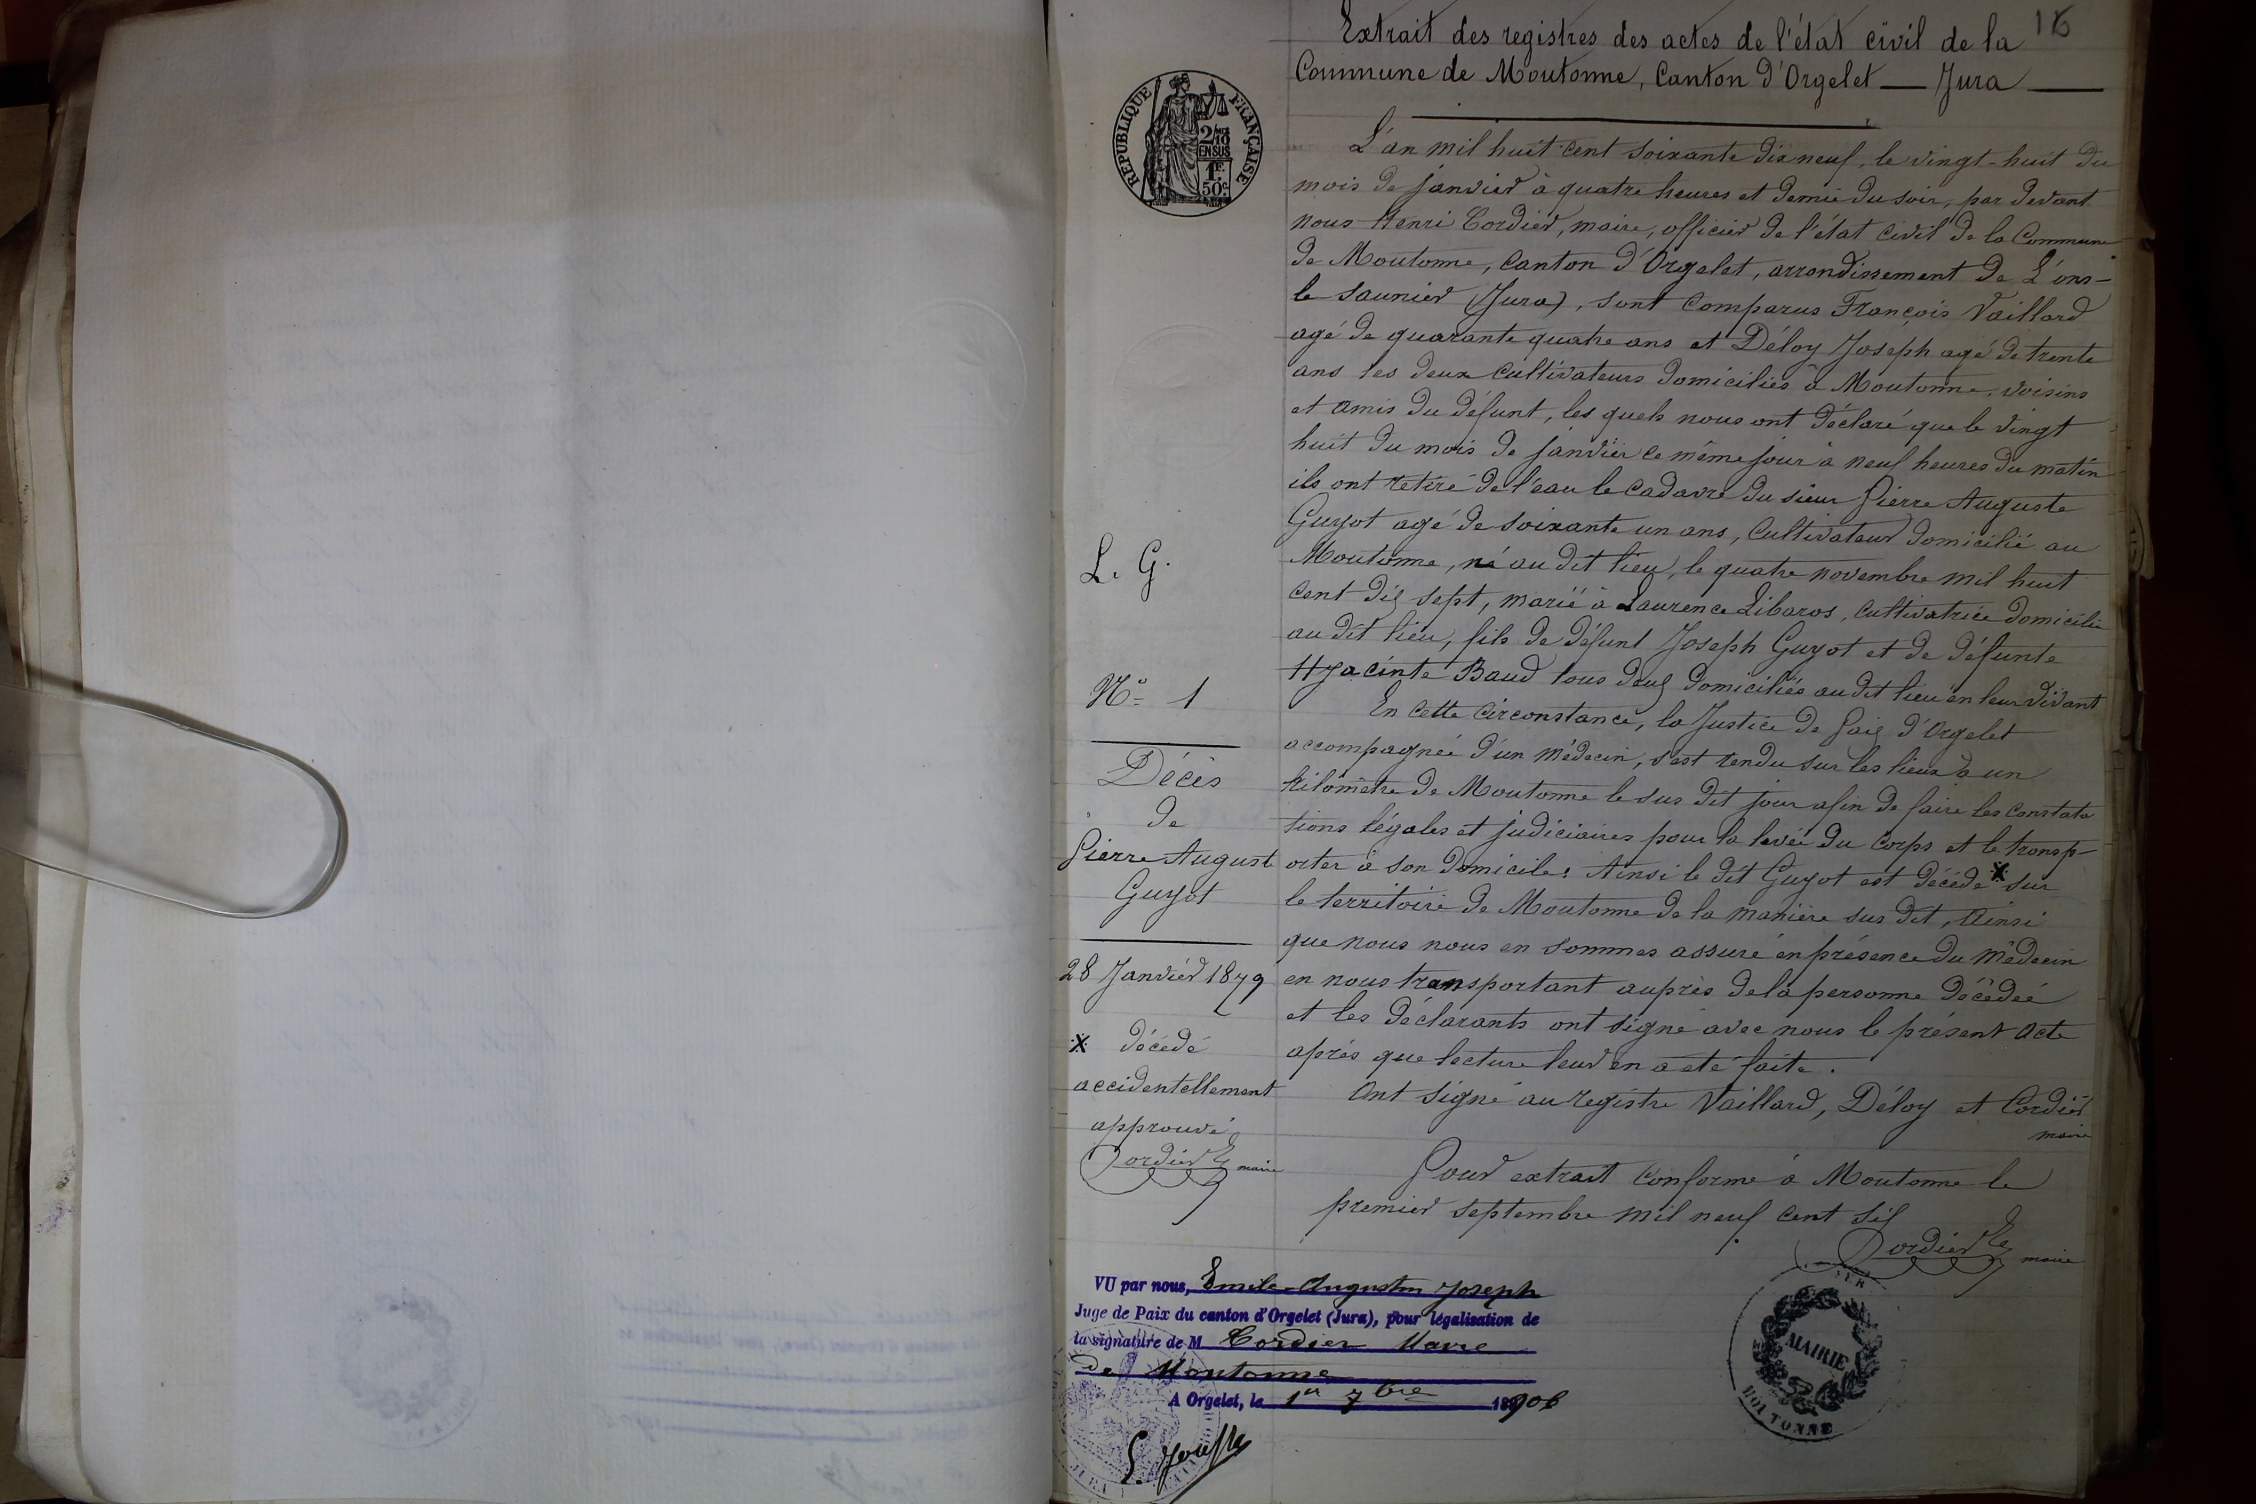 16
Extrait des registres des actes de l'état civil de la
Commune de Moutonne, Canton d'Orgelet — Jura —
REPUBLIQUE FRANÇAISE
2/10
EN SUS
1F.
50c
L'an mil huit cent soixante dix neuf, le vingt-huit du
mois de janvier à quatre heures et demie du soir, par devant
nous Henri Cordier, maire, officier de l'état civil de la Commune
de Moutonne, canton d'Orgelet, arrondissement de L'ons-
le Saunier (Jura), sont comparus François Vaillard
agé de quarante quatre ans et Déloy Joseph agé de trente
ans les deux cultivateurs domiciliés à Moutonne, voisins
et amis du défunt, les quels nous ont déclaré que le vingt
huit du mois de janvier ce même jour à neuf heures du matin
ils ont retiré de l'eau le cadavre du sieur Pierre Auguste
Guyot agé de soixante un ans, cultivateur domicilié au
Moutonne, né au dit lieu, le quatre novembre mil huit
cent dix sept, marié à Laurence Libaros, cultivatrice domicilié
au dit lieu, fils de défunt Joseph Guyot et de défunte
Hyacinte Baud tous deux domiciliés au dit lieu en leur vivant
En cette circonstance, la Justice de Paix d'Orgelet
accompagnée d'un médecin, s'est rendu sur les lieux à un
kilomètre de Moutonne le sus dit jour afin de faire les constata
tions légales et judiciaires pour la levée du corps et le transp-
orter à son domicile. Ainsi le dit Guyot est décédé x sur
le territoire de Moutonne de la manière sus dit, ainsi
que nous nous en sommes assuré en présence du médecin
en nous transportant auprès de la personne décédée
et les déclarants ont signé avec nous le présent acte
après que lecture leur en a été faite.
Ont signé au registre Vaillard, Déloy et Cordier
maire
Pour extrait conforme à Moutonne le
premier septembre mil neuf cent six
Cordier maire
L. G.
N° 1
Décès
de
Pierre August
Guyot
28 Janvier 1879
x décédé
accidentellement
approuvé
Cordier maire
VU par nous, Emile-Augustin Joseph
Juge de Paix du canton d'Orgelet (Jura), pour légalisation de
la signature de M Cordier Maire
de Moutonne
A Orgelet, le 1er 7bre 1906
MAIRIE
MOUTONNE